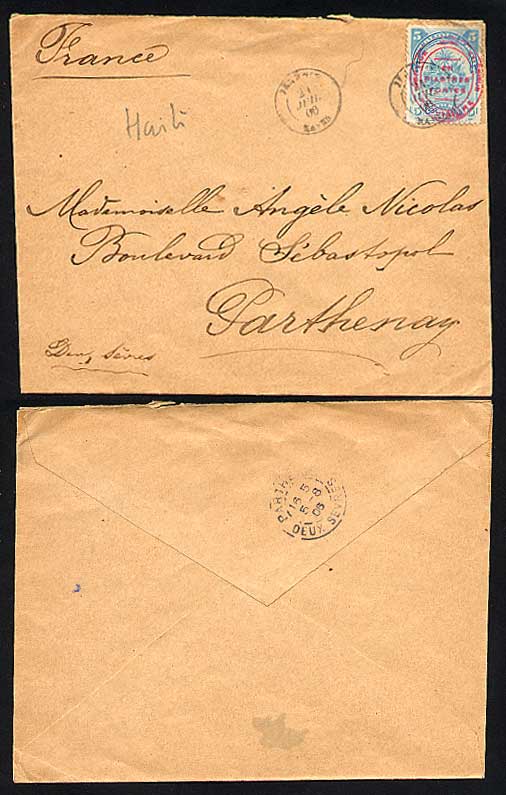 France
Haïti
5 5
EN
PIASTRES
FORTES
Mademoiselle Angèle Nicolas
Boulevard Sébastopol
Parthenay
Deux Sèvres
PARTHENAY
16 5
5 - 8
06
DEUX SEVRES